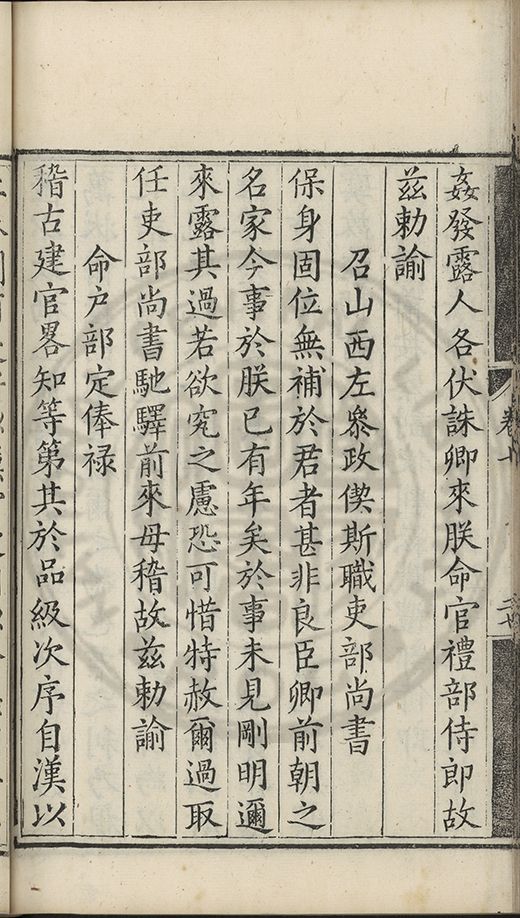 姦發露人各伏誅卿來朕命官禮部侍郎故
兹勅諭
召山西左叅政偰斯職吏部尚書
保身固位無補於君者甚非良臣卿前朝之
名家今事於朕已有年矣於事未見剛明邇
來露其過若欲究之慮恐可惜特赦爾過取
任吏部尚書馳驛前來毋稽故兹勅諭
命户部定俸禄
稽古建官畧知等第其於品級次序自漢以